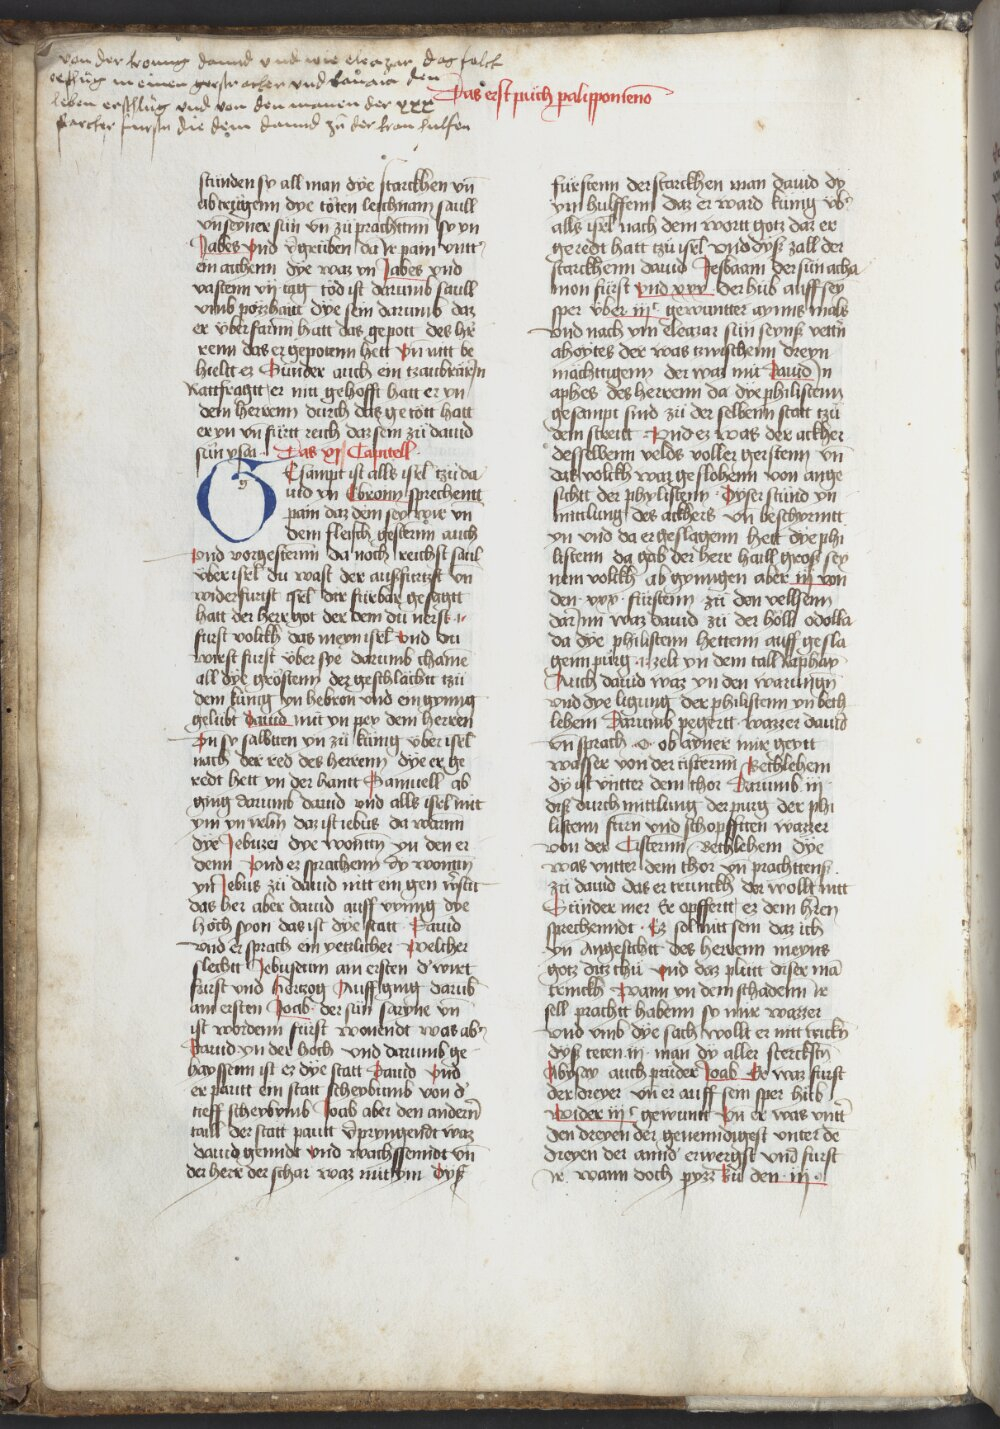 von der kronung dauid vnd wie eleazar das folck
erschlug in einen gerstnacker vnd banaia den
leben erschlug vnd von den manen der xxx
starcker fursten die dem dauid zů der kron hulfen
Das erst půch palipponieno
stůnden sy all man dye starckhen vn̄
abtrůgenn dye töten leichnam saull
vn̄ seyner sůn vn̄ zů prachtenn sy yn
Jabes vnd v̄grůben da Ir pain vntt̾
ein aichenn dye waz yn Jabes vnd
vastenn vij tag töd ist darumb saull
vmb poßhaitt dye sein darumb daz
er v̈berfarnn hatt das gepott des her
renn das er gepotenn hett Vn̄ nitt be
hieltt ez Sůnder auch ein tzaubrärin
Rattfragtt er nitt gehofft hatt er yn
dem herrenn durch das ge tött hatt
er yn vn̄ fürtt reich dar sein zů dauid
sůn ysai · Das xj Capitell
GEsampt ist alls isel tzů da
uid yn Ebronn sprechentt
pain daz dein sey wir vn̄
dein fleisch gesternn auch
vnd vorgesternn da noch reichst saul
v̈ber isel du wast der ausfurist vn̄
widerfurist isel dir fürbar gesagtt
hatt der herr got der dein du nerst ·
furst volckh das meyn isel vnd du
wirst furst v̈ber sye darumb chame
all dye gröstenn der geschlächt tzů
dem kůnig yn hebron vnd ein gynng
gelübt dauid mit yn pey dem herren
Vn̄ sy salbtten yn zů künig v̈ber isel
nach der red des herrenn dye er ge
redt hett yn der hantt Samuell ab
ging darumb dauid vnd alls isel mit
ym yn yrlm̄ daz ist iebus da warnn
dye Jebuzei dye wontn̄ yn den er
denn Vnd er sprachenn dy wontn̄
yn Jebus zů dauid nitt ein gen wirstu
das her aber dauid auff vynng dye
höch syon das ist dye statt · Dauid
vnd er sprach ein yetzlicher welcher
slechtt Jebuseum am ersten d̾ wirt
furst vnd hertzog Auff ging darub
am ersten Joab der sůn saruye vn̄
ist wordenn fürst wonendt was ab̾
Dauid yn der höch vnd darumb ge
hayssenn ist ez dye statt Dauid Vnd
er pautt ein statt scheybumb von d̾
tieff scheybumb Joab aber den andern̄
taill der statt pautt v̄pryngendt waz
dauid geendt vnd wachssenndt vn̄
der herr der schar waz mit ym Dyß
fürstenn der starckhen man dauid dy
ym hulffenn daz er ward künig v̈b̾
alls isel nach dem wortt gotz daz er
geredt hatt tzů isel vnd dyß zall der
starckhenn dauid Jesbaam der sůn acha
mon fürst vnd xxx · der hůb auff sey
sper v̈ber iijᶜ gewuntter aynns mals
vnd nach ym eleazar sůn seynß vettn̄
ahoytes der was tzwischenn dreyn
mächttigenn der waz mit Dauid Jn
aphes des herrenn da dye philistenn
gesampt sind zů der selbenn statt tzů
dem streitt · Vnd ez was der ackher
desselbenn velds voller gerstenn vn̄
daz volckh waz geflohenn von ange
sichtt der phylistenn · Dyser stund yn
mittlung des ackhers vn̄ beschyrmtt
yn vnd da er geslagenn hett dye phi
listenn da gab der herr haill groß sey
nem volckh ab gynngen aber iij von
den · xxx · fürstenn zů den velsenn
dar Jnn waz dauid zů der höll odolla
da dye philistenn hettenn auff gesla
genn pürg · i · zelt yn dem tall raphaym
Auch dauid waz yn den warungn̄
vnd dye ligrung der philistenn yn beth
lehem Darumb pegertt wazzer dauid
vn̄ sprach · O · ob ayner mir geytt
wasser von der tisternn Bethlehem
dy ist vntter dem thor Darumb iij
diß durch mittlung der purg der phi
listenn fürn vnd schopfftten wazzer
von der Cisternn Bethlehem dye
was vntter dem thor vn̄ prachttens̾
zů dauid das er trunckh der wollt nitt
Sůnder mer Er opffertt ez dem hr̄en
sprechenndt · Ez sol nitt sein daz ich
yn angesichtt des herrenn meyns
gotz ditz thů vnd daz plůtt diser mā
trinckh Wann yn dem schadenn Ir
sell prachtt habenn sy mir wazzer
vnd vmb dye sach wollt er nitt trickn̄
dyß teten iij · man dy aller sterckstn̄
Abysay auch průder Joab Er waz fürst
der dreyer vn̄ er auff sein sper hůb
Wider iijᶜ gewuntt Vn̄ er was vntt̾
den dreyen der genemdigest vnter de
dreyen der annd̾ erwergst vnd fürst
Ir wann doch pyzz zů den iij ·